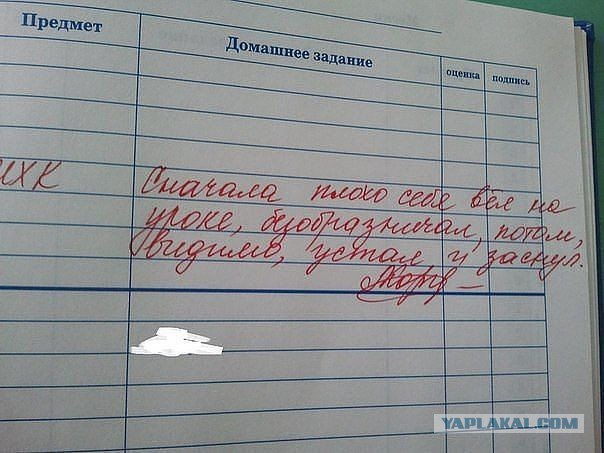 Предмет
Домашнее задание
оценка
подпись
МХК
Сначала плохо себя вёл на
уроке, безобразничал, потом,
видимо, устал и заснул.
YAPLAKAL.COM